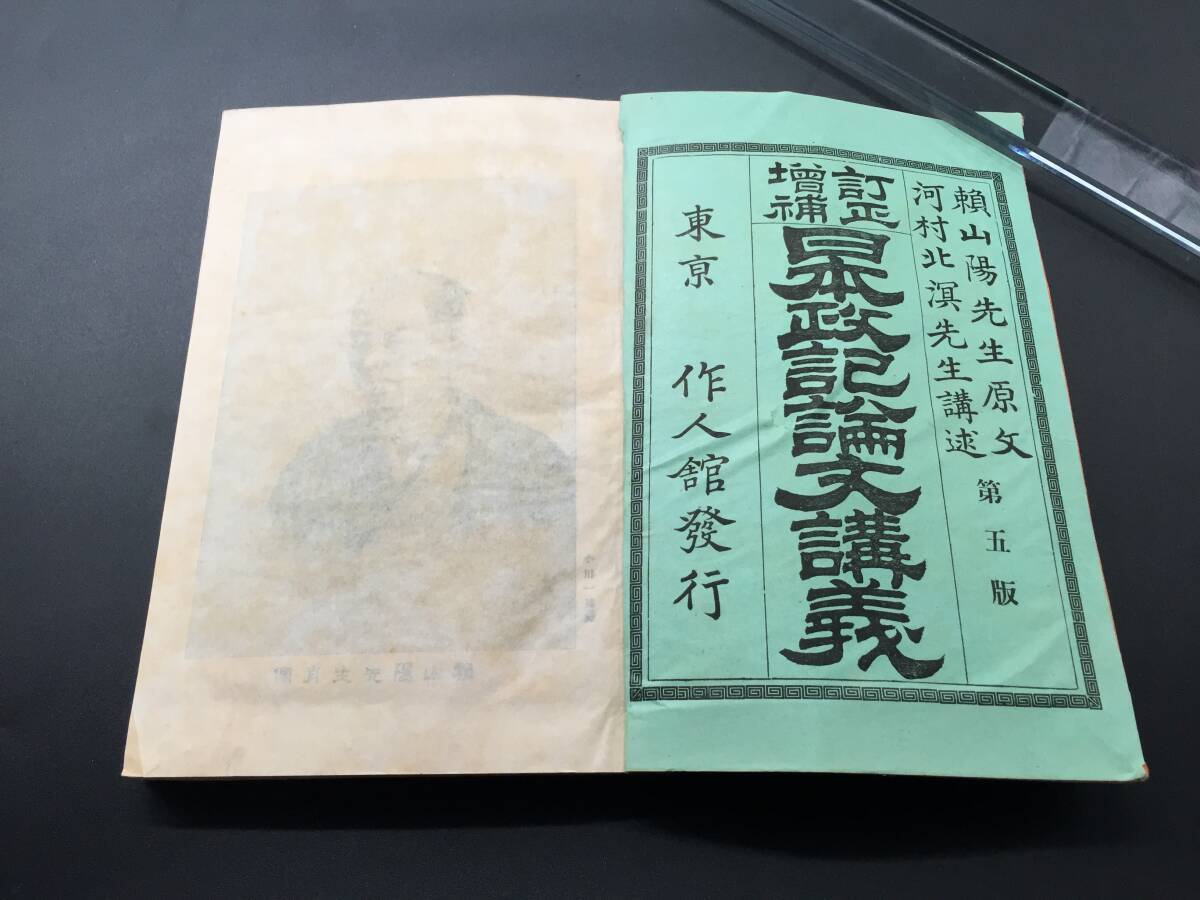 賴山陽先生原文
河村北溟先生講述
第五版
訂正
增補
日本政記論文講義
東京 作人舘發行
賴山陽先生肖像